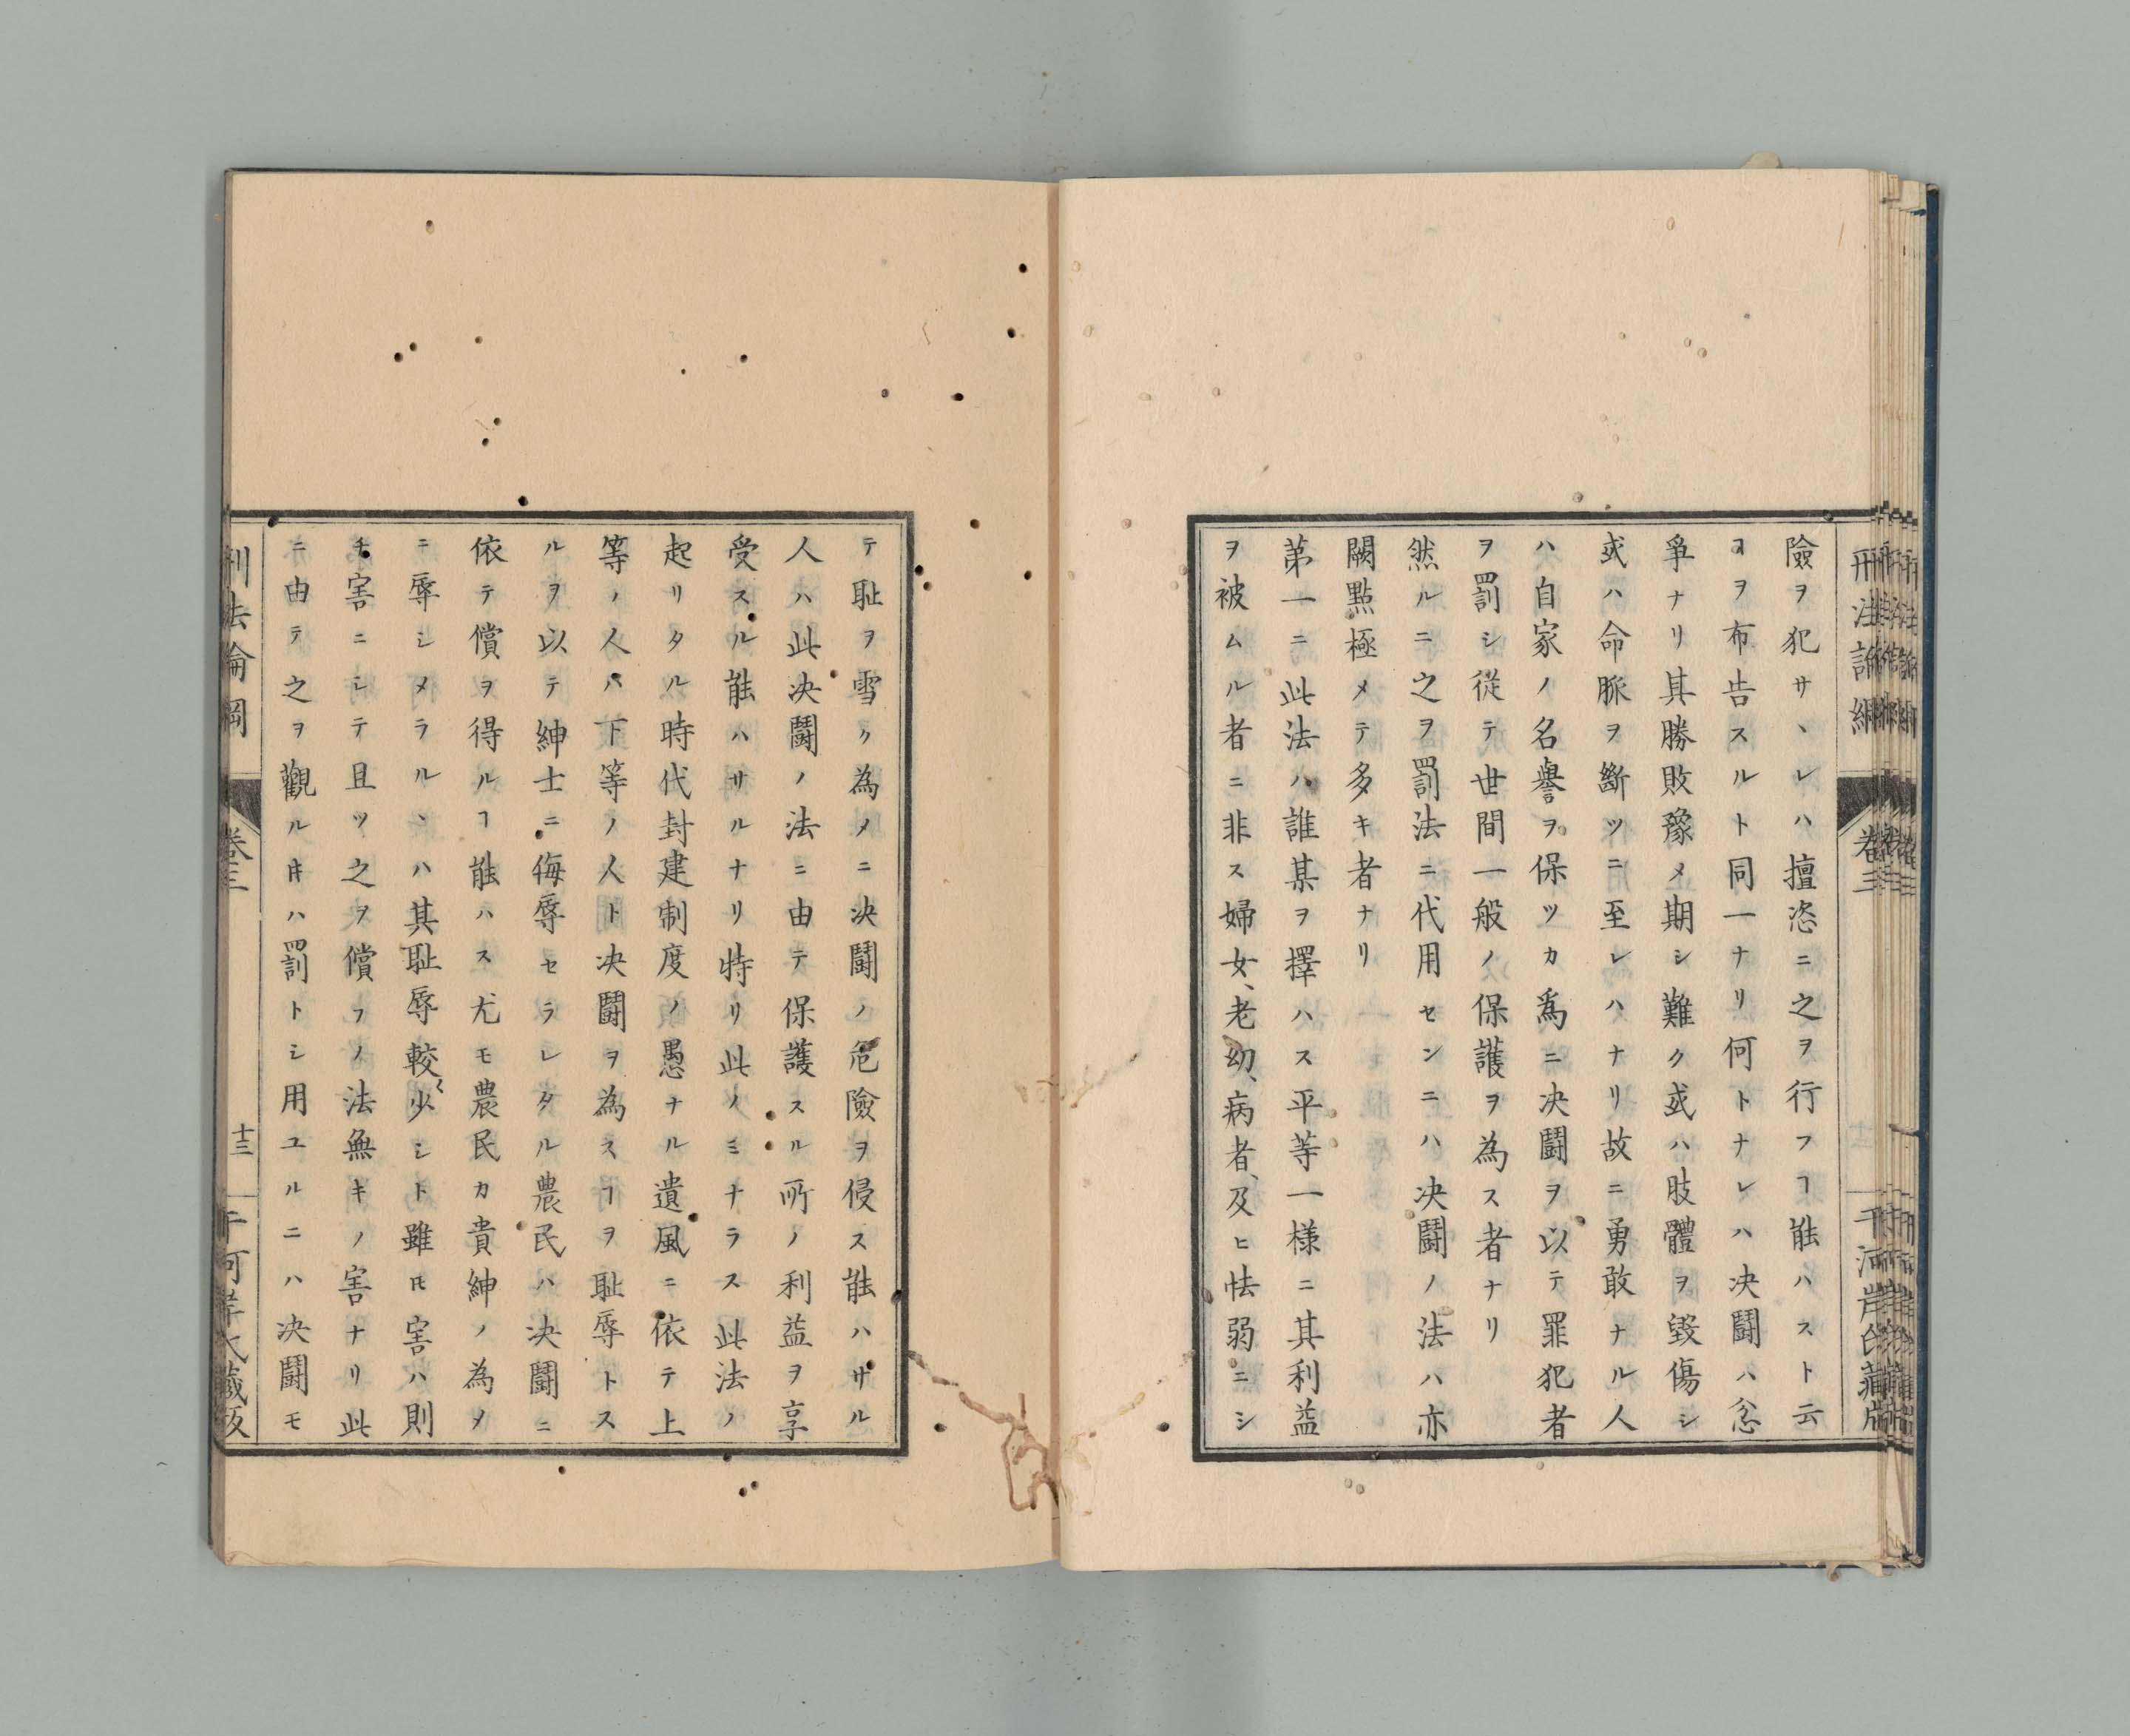 險ヲ犯サヽレハ擅恣ニ之ヲ行フヿ能ハスト云
ヿヲ布告スルト同一ナリ何トナレハ决鬪ハ忿
爭ナリ其勝敗豫メ期シ難ク或ハ肢體ヲ毀傷シ
或ハ命脈ヲ斷ツニ至レハナリ故ニ勇敢ナル人
ハ自家ノ名譽ヲ保ツカ爲ニ决鬪ヲ以テ罪犯者
ヲ罰シ從テ世間一般ノ保護ヲ為ス者ナリ
然ルニ之ヲ罰法ニ代用センニハ决鬪ノ法ハ亦
闕點極メテ多キ者ナリ
第一ニ此法ハ誰某ヲ擇ハス平等一様ニ其利益
ヲ被ムル者ニ非ス婦女、老幼、病者、及ヒ怯弱ニシ
テ耻ヲ雪ク為メニ决鬪ノ危險ヲ侵ス能ハサル
人ハ此决鬪ノ法ニ由テ保護スル所ノ利益ヲ享
受スル能ハサルナリ特リ此ノミナラス此法ノ
起リタル時代封建制度ノ愚ナル遺風ニ依テ上
等ノ人ハ下等ノ人ト决鬪ヲ為スヿヲ耻辱トス
ルヲ以テ紳士ニ侮辱セラレタル農民ハ决鬪ニ
依テ償ヲ得ルヿ能ハス尤モ農民カ貴紳ノ為メ
ニ辱シメラルヽハ其耻辱較〱少シト雖𪜈害ハ則
チ害ニシテ且ツ之ヲ償フノ法無キノ害ナリ此
ニ由テ之ヲ觀ル𪜈ハ罰トシ用ユルニハ决鬪モ
刑法論綱
卷三
十三
千河岸氏藏版